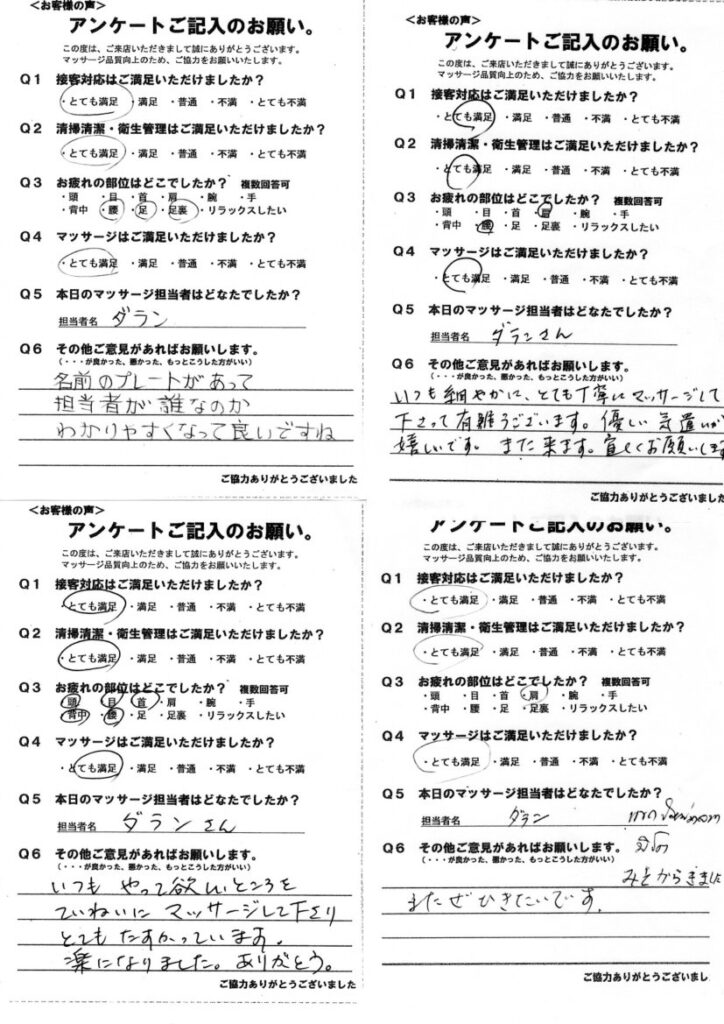 ＜お客様の声＞
アンケートご記入のお願い。
この度は、ご来店いただきまして誠にありがとうございます。
マッサージ品質向上のため、ご協力をお願いいたします。
Q1 接客対応はご満足いただけましたか？
・とても満足 ・満足 ・普通 ・不満 ・とても不満
Q2 清掃清潔・衛生管理はご満足いただけましたか？
・とても満足 ・満足 ・普通 ・不満 ・とても不満
Q3 お疲れの部位はどこでしたか？ 複数回答可
・頭 ・目 ・首 ・肩 ・腕 ・手
・背中 ・腰 ・足 ・足裏 ・リラックスしたい
Q4 マッサージはご満足いただけましたか？
・とても満足 ・満足 ・普通 ・不満 ・とても不満
Q5 本日のマッサージ担当者はどなたでしたか？
担当者名 ダラン
Q6 その他ご意見があればお願いします。
（・・・が良かった、悪かった、もっとこうした方がいい）
名前のプレートがあって
担当者が誰なのか
わかりやすくなって良いですね
ご協力ありがとうございました
＜お客様の声＞
アンケートご記入のお願い。
この度は、ご来店いただきまして誠にありがとうございます。
マッサージ品質向上のため、ご協力をお願いいたします。
Q1 接客対応はご満足いただけましたか？
・とても満足 ・満足 ・普通 ・不満 ・とても不満
Q2 清掃清潔・衛生管理はご満足いただけましたか？
・とても満足 ・満足 ・普通 ・不満 ・とても不満
Q3 お疲れの部位はどこでしたか？ 複数回答可
・頭 ・目 ・首 ・肩 ・腕 ・手
・背中 ・腰 ・足 ・足裏 ・リラックスしたい
Q4 マッサージはご満足いただけましたか？
・とても満足 ・満足 ・普通 ・不満 ・とても不満
Q5 本日のマッサージ担当者はどなたでしたか？
担当者名 ダランさん
Q6 その他ご意見があればお願いします。
（・・・が良かった、悪かった、もっとこうした方がいい）
いつも細やかに、とても丁寧にマッサージして
下さって有難うございます。優しい気遣いが
嬉しいです。また来ます。宜しくお願いします
ご協力ありがとうございました
＜お客様の声＞
アンケートご記入のお願い。
この度は、ご来店いただきまして誠にありがとうございます。
マッサージ品質向上のため、ご協力をお願いいたします。
Q1 接客対応はご満足いただけましたか？
・とても満足 ・満足 ・普通 ・不満 ・とても不満
Q2 清掃清潔・衛生管理はご満足いただけましたか？
・とても満足 ・満足 ・普通 ・不満 ・とても不満
Q3 お疲れの部位はどこでしたか？ 複数回答可
・頭 ・目 ・首 ・肩 ・腕 ・手
・背中 ・腰 ・足 ・足裏 ・リラックスしたい
Q4 マッサージはご満足いただけましたか？
・とても満足 ・満足 ・普通 ・不満 ・とても不満
Q5 本日のマッサージ担当者はどなたでしたか？
担当者名 ダランさん
Q6 その他ご意見があればお願いします。
（・・・が良かった、悪かった、もっとこうした方がいい）
いつもやって欲しいところを
ていねいにマッサージして下さり
とてもたすかっています。
楽になりました。ありがとう。
ご協力ありがとうございました
アンケートご記入のお願い。
この度は、ご来店いただきまして誠にありがとうございます。
マッサージ品質向上のため、ご協力をお願いいたします。
Q1 接客対応はご満足いただけましたか？
・とても満足 ・満足 ・普通 ・不満 ・とても不満
Q2 清掃清潔・衛生管理はご満足いただけましたか？
・とても満足 ・満足 ・普通 ・不満 ・とても不満
Q3 お疲れの部位はどこでしたか？ 複数回答可
・頭 ・目 ・首 ・肩 ・腕 ・手
・背中 ・腰 ・足 ・足裏 ・リラックスしたい
Q4 マッサージはご満足いただけましたか？
・とても満足 ・満足 ・普通 ・不満 ・とても不満
Q5 本日のマッサージ担当者はどなたでしたか？
担当者名 ダラン
Q6 その他ご意見があればお願いします。
（・・・が良かった、悪かった、もっとこうした方がいい）
みとからきました
またぜひきたいです。
ご協力ありがとうございまし